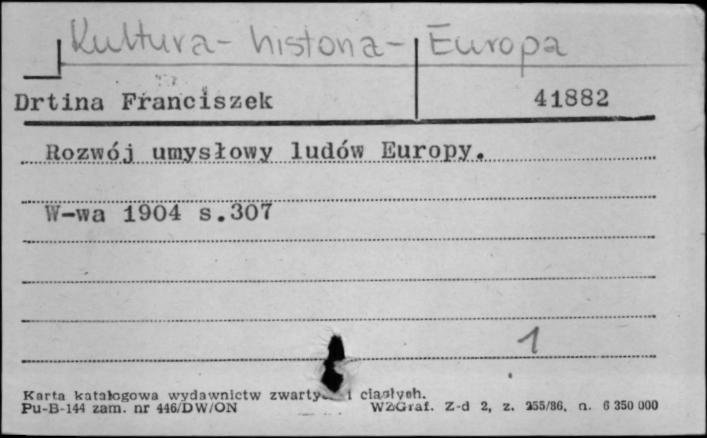 Kultura - historia - Europa
Drtina Franciszek 41882
Rozwój umysłowy ludów Europy.
W-wa 1904 s.307
1
Karta katalogowa wydawnictw i ciągłych.
Pu-B-144 zam. nr 446/DW/ON WZGraf. Z-d 2, z. 255/86, n. 6 350 000